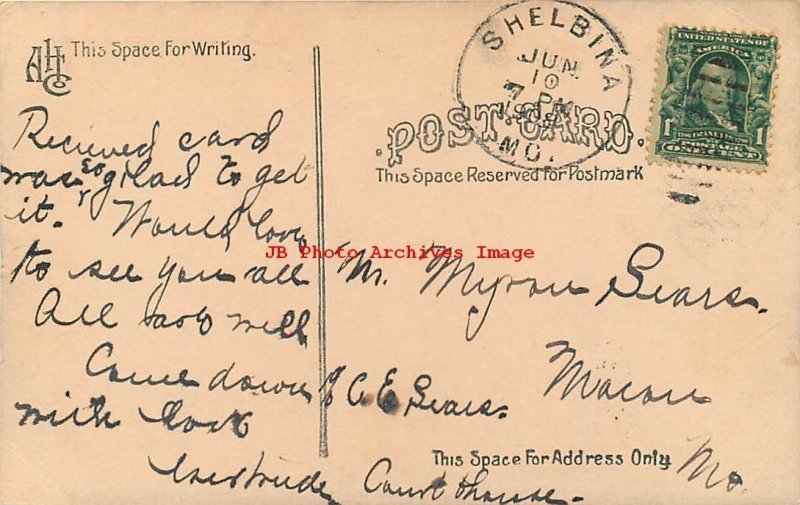 AHCo This Space For Writing.
Recieved card
was so glad to get
it. Would love
to see you all
All well
Come down
with
Gertrude
SHELBINA
JUN
10
7 PM
MO.
POST CARD.
This Space Reserved for Postmark
UNITED STATES OF AMERICA
1 1
ONE CENT
JB Photo Archives Image
Mr. Myron Sears.
Macon
% C. E. Sears.
Mo.
This Space For Address Only
Court house.